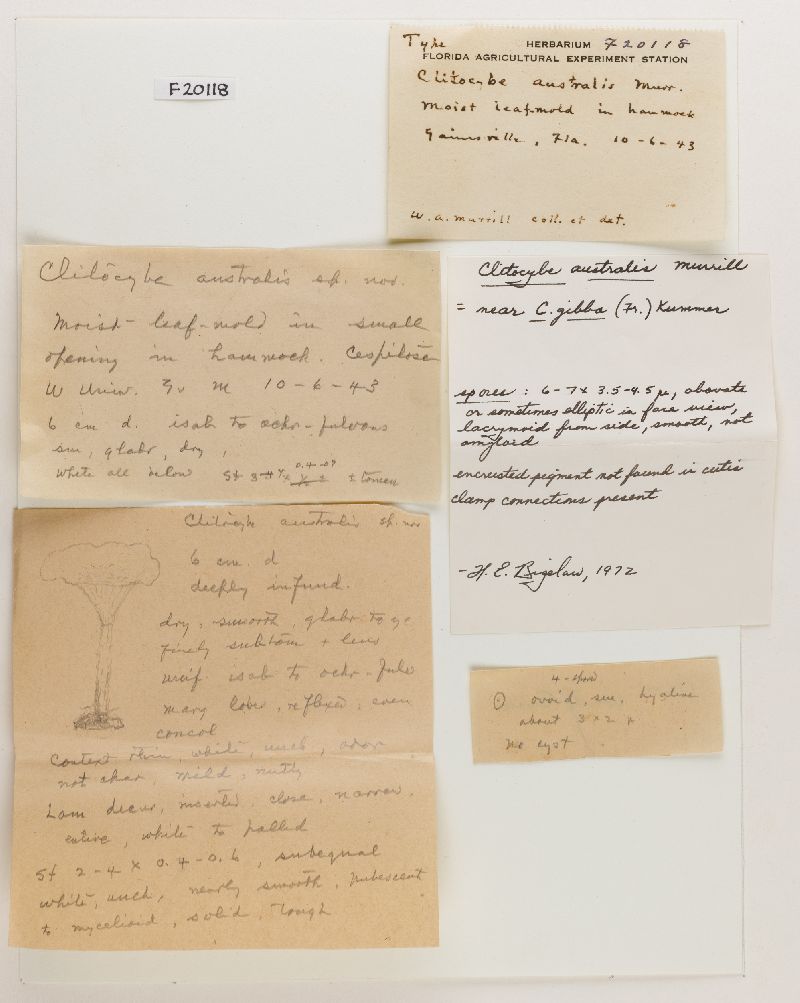 F20118
Type HERBARIUM F20118
FLORIDA AGRICULTURAL EXPERIMENT STATION
Clitocybe australis Murr.
Moist leaf-mold in hammock
Gainesville, Fla. 10-6-43
W. A. Murrill coll. et det.
Clitocybe australis sp. nov.
Moist leaf-mold in small
opening in hammock. Cespitose
W Univ. Gv M 10-6-43
6 cm d. isab to ochr-fulvous
sm, glabr, dry,
White all below St 3-4 × 0.4-0.7 ± tomen
Clitocybe australis sp. nov
6 cm. d
deeply infund.
dry, smooth, glabr to
finely subtom + lens
unif isab to ochr-fulv
marg lobed, reflexed, even
concol
Context thin, white, unch, odor
not char, mild, nutty
Lam decur, inserted, close, narrow,
entire, white to pallid
St 2-4 × 0.4-0.6, subequal
white, unch, nearly smooth, pubescent
to mycelioid, solid, tough
Clitocybe australis Murrill
= near C. gibba (Fr.) Kummer
spores: 6-7 × 3.5-4.5 µ, obovate
or sometimes elliptic in face view,
lacrymoid from side, smooth, not
amyloid
encrusted pigment not found in cutis
clamp connections present
- H. E. Bigelow, 1972
4-spored
ovoid, sm, hyaline
about 3 × 2 µ
No cyst